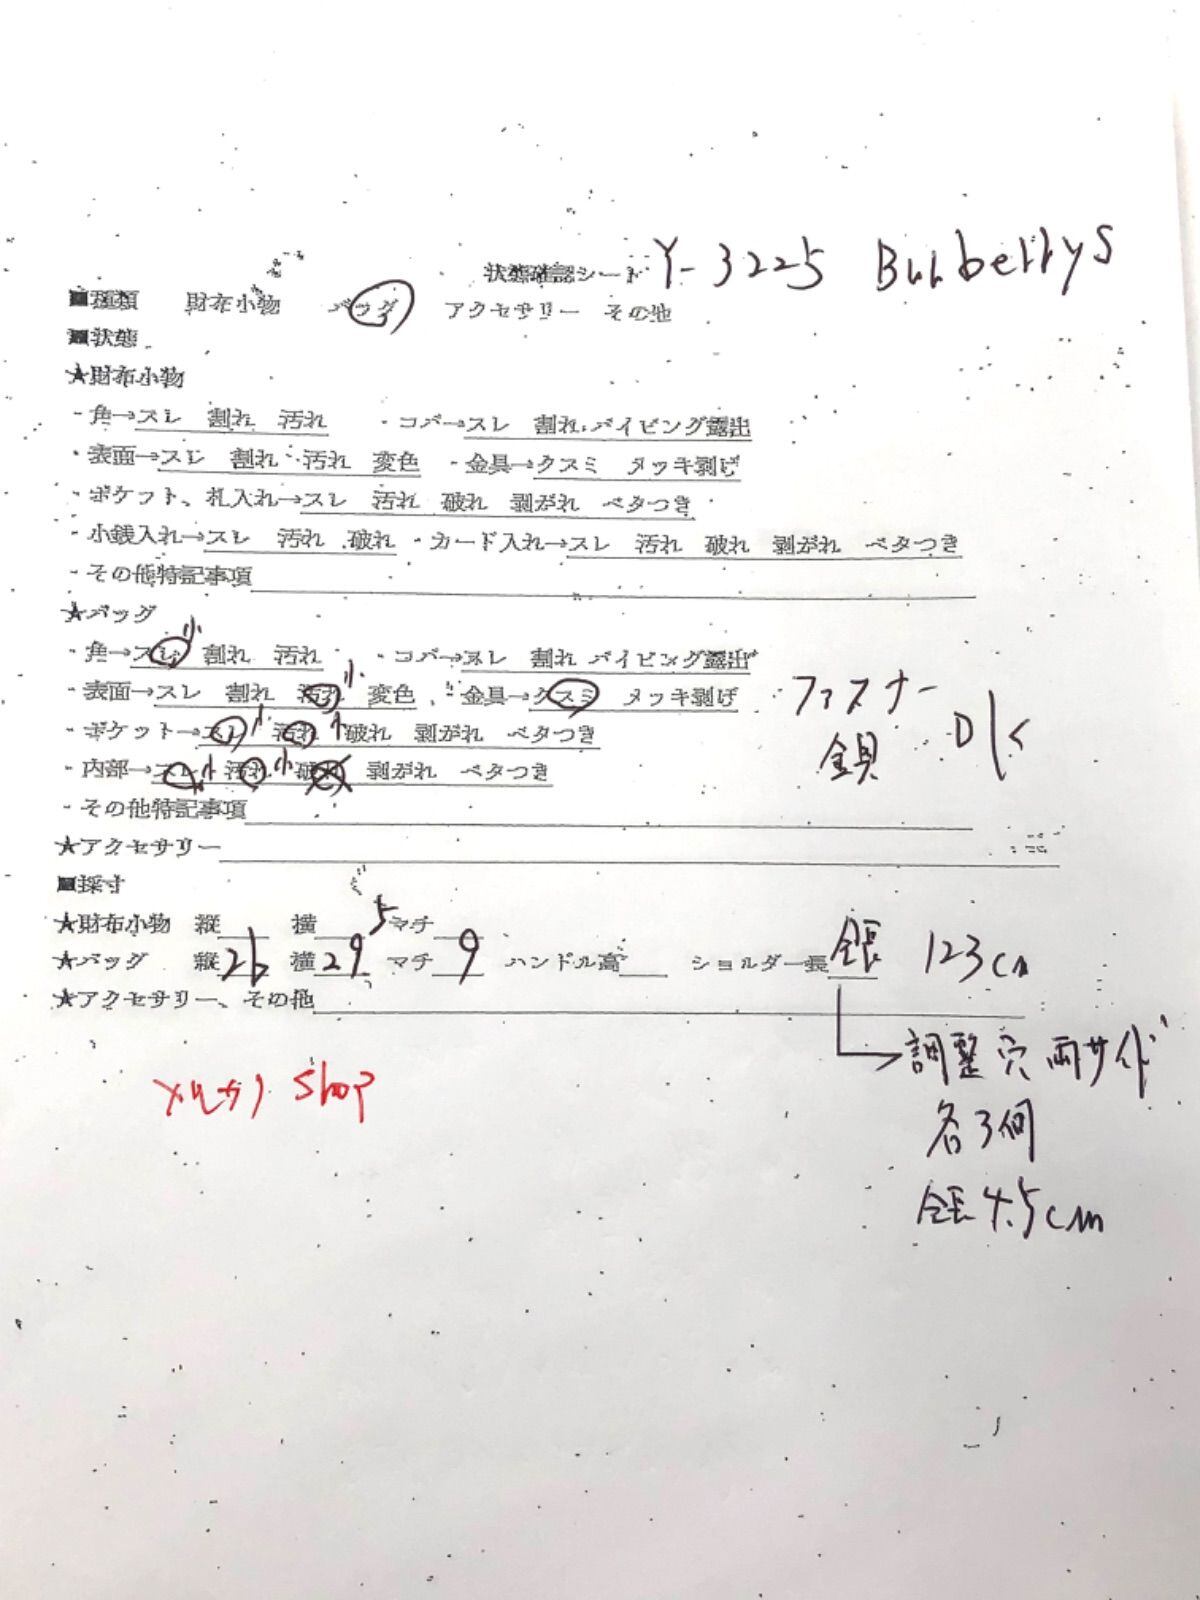 状態確認シート Y-3225 Burberrys
■種類 財布小物 バッグ アクセサリー その他
■状態
★財布小物
・角→スレ 割れ 汚れ ・コバ→スレ 割れ パイピング露出
・表面→スレ 割れ 汚れ 変色 ・金具→クスミ メッキ剥げ
・ポケット、札入れ→スレ 汚れ 破れ 剥がれ ベタつき
・小銭入れ→スレ 汚れ 破れ ・カード入れ→スレ 汚れ 破れ 剥がれ ベタつき
・その他特記事項
★バッグ
・角→スレ小 割れ 汚れ ・コバ→スレ 割れ パイピング露出
・表面→スレ 割れ 汚れ小 変色 ・金具→クスミ メッキ剥げ ファスナー
・ポケット→スレ小 汚れ小 破れ 剥がれ ベタつき 鎖 OK
・内部→スレ小 汚れ小 破れ 剥がれ ベタつき
・その他特記事項
★アクセサリー
■採寸
★財布小物 縦 横 マチ
★バッグ 縦26 横29.5 マチ9 ハンドル高 ショルダー長 全長 123cm
★アクセサリー、その他
調整穴 両サイド
各3個
全長 4.5cm
メルカリ Shop